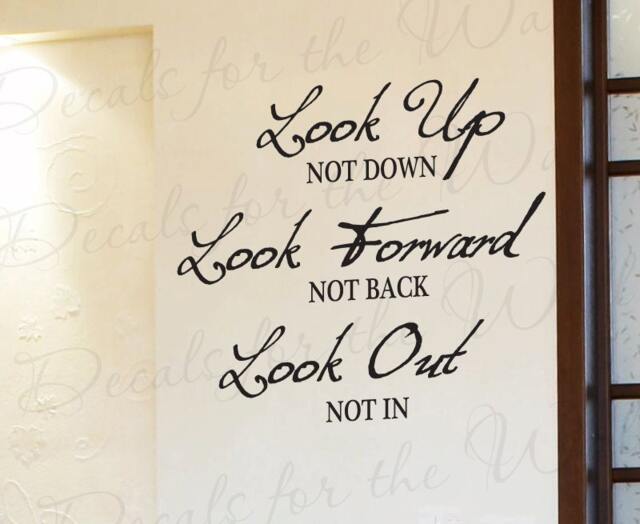 Decals for the Wa
Look Up
NOT DOWN
Decals for the Wa
Look Forward
NOT BACK
Decals for the W
Look Out
NOT IN
Decals for the W